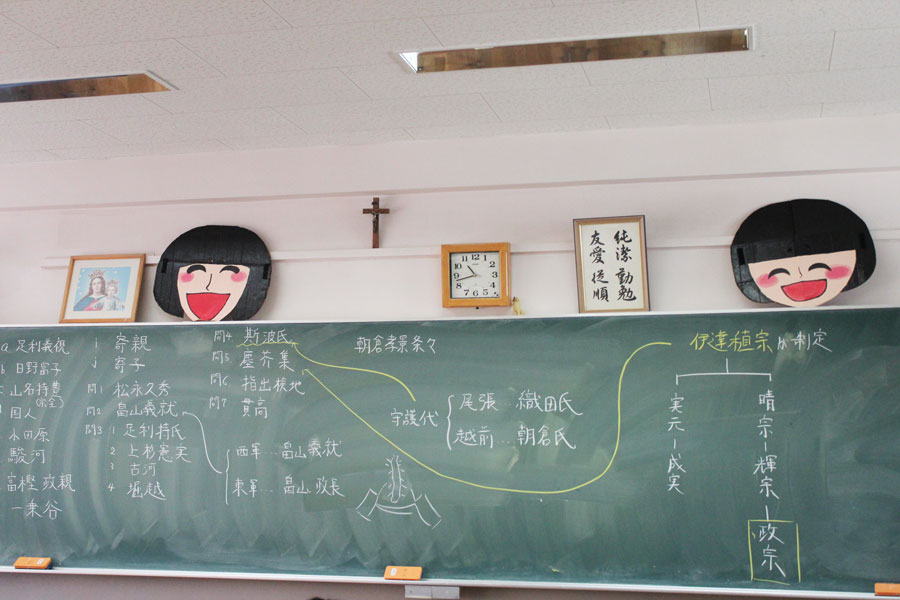 純潔 勤勉
友愛 從順
a 足利義視
b 日野富子
山名持豊
(宗全)
国人
小田原
駿河
富樫政親
一乗谷
i 寄親
j 寄子
問1 松永久秀
問2 畠山義就
問3 1 足利持氏
2 上杉憲実
3 古河
4 堀越
西軍…畠山義就
東軍…畠山政長
問4 斯波氏
問5 塵芥集
問6 指出検地
問7 貫高
朝倉孝景条々
守護代
尾張…織田氏
越前…朝倉氏
伊達稙宗が制定
晴宗ー輝宗ー政宗
実元ー成実